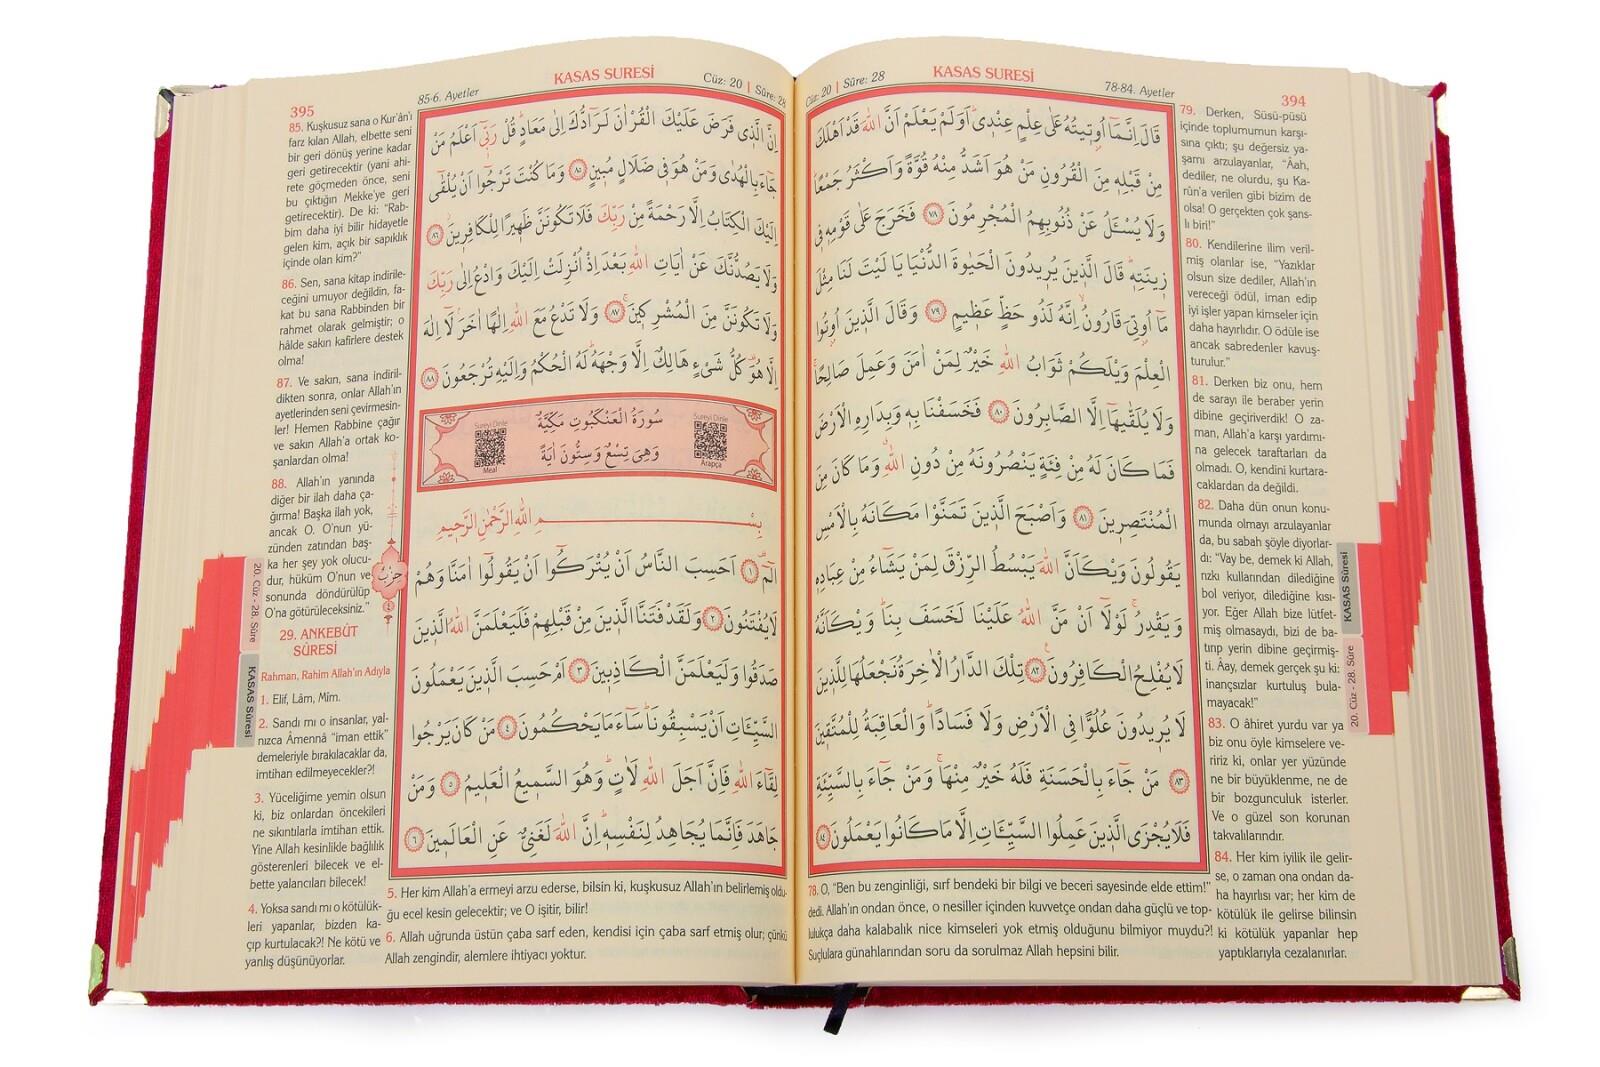 394
KASAS SURESİ
Cüz: 20 | Sûre: 28
78-84. Ayetler
قَالَ اِنَّمَٓا اُو۫ت۪يتُهُ عَلٰى عِلْمٍ عِنْد۪يۜ اَوَلَمْ يَعْلَمْ اَنَّ اللّٰهَ قَدْ اَهْلَكَ
مِنْ قَبْلِه۪ مِنَ الْقُرُونِ مَنْ هُوَ اَشَدُّ مِنْهُ قُوَّةً وَاَكْثَرُ جَمْعًاۜ
وَلَا يُسْـَٔلُ عَنْ ذُنُوبِهِمُ الْمُجْرِمُونَ ﴿٧٨﴾ فَخَرَجَ عَلٰى قَوْمِه۪ ف۪ي
ز۪ينَتِه۪ۜ قَالَ الَّذ۪ينَ يُر۪يدُونَ الْحَيٰوةَ الدُّنْيَا يَا لَيْتَ لَنَا مِثْلَ
مَٓا اُو۫تِيَ قَارُونُۙ اِنَّهُ لَذُو حَظٍّ عَظ۪يمٍ ﴿٧٩﴾ وَقَالَ الَّذ۪ينَ اُو۫تُوا
الْعِلْمَ وَيْلَكُمْ ثَوَابُ اللّٰهِ خَيْرٌ لِمَنْ اٰمَنَ وَعَمِلَ صَالِحًاۚ
وَلَا يُلَقّٰيهَٓا اِلَّا الصَّابِرُونَ ﴿٨٠﴾ فَخَسَفْنَا بِه۪ وَبِدَارِهِ الْاَرْضَ
فَمَا كَانَ لَهُ مِنْ فِئَةٍ يَنْصُرُونَهُ مِنْ دُونِ اللّٰهِۗ وَمَا كَانَ مِنَ
الْمُنْتَصِر۪ينَ ﴿٨١﴾ وَاَصْبَحَ الَّذ۪ينَ تَمَنَّوْا مَكَانَهُ بِالْاَمْسِ
يَقُولُونَ وَيْكَاَنَّ اللّٰهَ يَبْسُطُ الرِّزْقَ لِمَنْ يَشَٓاءُ مِنْ عِبَادِه۪
وَيَقْدِرُۚ لَوْلَٓا اَنْ مَنَّ اللّٰهُ عَلَيْنَا لَخَسَفَ بِنَاۜ وَيْكَاَنَّهُ
لَا يُفْلِحُ الْكَافِرُونَ ﴿٨٢﴾ تِلْكَ الدَّارُ الْاٰخِرَةُ نَجْعَلُهَا لِلَّذ۪ينَ
لَا يُر۪يدُونَ عُلُوًّا فِي الْاَرْضِ وَلَا فَسَادًاۜ وَالْعَاقِبَةُ لِلْمُتَّق۪ينَ
﴿٨٣﴾ مَنْ جَٓاءَ بِالْحَسَنَةِ فَلَهُ خَيْرٌ مِنْهَاۚ وَمَنْ جَٓاءَ بِالسَّيِّئَةِ
فَلَا يُجْزَى الَّذ۪ينَ عَمِلُوا السَّيِّـَٔاتِ اِلَّا مَا كَانُوا يَعْمَلُونَ ﴿٨٤﴾
78. O, “Ben bu zenginliği, sırf bendeki bir bilgi ve beceri sayesinde elde ettim!”
dedi. Allah’ın ondan önce, o nesiller içinden kuvvetçe ondan daha güçlü ve top-
lulukça daha kalabalık nice kimseleri yok etmiş olduğunu bilmiyor muydu?!
Suçlulara günahlarından soru da sorulmaz Allah hepsini bilir.
79. Derken, Süsü-püsü
içinde toplumumun karşı-
sına çıktı; şu değersiz ya-
şamı arzulayanlar, “Âah,
dediler, ne olurdu, şu Ka-
rûn’a verilen gibi bizim de
olsa! O gerçekten çok şans-
lı biri!”
80. Kendilerine ilim veril-
miş olanlar ise, “Yazıklar
olsun size dediler, Allah’ın
vereceği ödül, iman edip
iyi işler yapan kimseler için
daha hayırlıdır. O ödüle ise
ancak sabredenler kavuş-
turulur.”
81. Derken biz onu, hem
de sarayı ile beraber yerin
dibine geçiriverdik! O za-
man, Allah’a karşı yardımı-
na gelecek taraftarları da
olmadı. O, kendini kurtara-
caklardan da değildi.
82. Daha dün onun konu-
munda olmayı arzulayanlar
da, bu sabah şöyle diyorlar-
dı: “Vay be, demek ki Allah,
rızkı kullarından dilediğine
bol veriyor, dilediğine kısı-
yor. Eğer Allah bize lütfet-
miş olmasaydı, bizi de ba-
tırıp yerin dibine geçirmiş-
ti. Aay, demek gerçek şu ki:
inançsızlar kurtuluş bula-
mayacak!”
83. O âhiret yurdu var ya
biz onu öyle kimselere ve-
ririz ki, onlar yer yüzünde
ne bir büyüklenme, ne de
bir bozgunculuk isterler.
Ve o güzel son korunan
takvalılarındır.
84. Her kim iyilik ile gelir-
se, o zaman ona ondan da-
ha hayırlısı var; her kim de
kötülük ile gelirse bilinsin
ki kötülük yapanlar hep
yaptıklarıyla cezalanırlar.
KASAS Sûresi
20. Cüz - 28. Sûre
395
KASAS SURESİ
Cüz: 20 | Sûre: 28
85-6. Ayetler
اِنَّ الَّذ۪ي فَرَضَ عَلَيْكَ الْقُرْاٰنَ لَرَٓادُّكَ اِلٰى مَعَادٍۜ قُلْ رَبّ۪ٓي اَعْلَمُ مَنْ
جَٓاءَ بِالْهُدٰى وَمَنْ هُوَ ف۪ي ضَلَالٍ مُب۪ينٍ ﴿٨٥﴾ وَمَا كُنْتَ تَرْجُٓوا اَنْ يُلْقٰٓى
اِلَيْكَ الْكِتَابُ اِلَّا رَحْمَةً مِنْ رَبِّكَ فَلَا تَكُونَنَّ ظَه۪يرًا لِلْكَافِر۪ينَۘ ﴿٨٦﴾
وَلَا يَصُدُّنَّكَ عَنْ اٰيَاتِ اللّٰهِ بَعْدَ اِذْ اُنْزِلَتْ اِلَيْكَ وَادْعُ اِلٰى رَبِّكَ
وَلَا تَكُونَنَّ مِنَ الْمُشْرِك۪ينَۚ ﴿٨٧﴾ وَلَا تَدْعُ مَعَ اللّٰهِ اِلٰهًا اٰخَرَۢ لَٓا اِلٰهَ
اِلَّا هُوَ۠ كُلُّ شَيْءٍ هَالِكٌ اِلَّا وَجْهَهُۜ لَهُ الْحُكْمُ وَاِلَيْهِ تُرْجَعُونَ ﴿٨٨﴾
سُورَةُ الْعَنْكَبُوتِ مَكِّيَّةٌ
وَهِيَ تِسْعٌ وَسِتُّونَ اٰيَةً
Sureyi Dinle
Arapça
Sureyi Dinle
Meal
بِسْمِ اللّٰهِ الرَّحْمٰنِ الرَّح۪يمِ
الٓمٓۚ ﴿١﴾ اَحَسِبَ النَّاسُ اَنْ يُتْرَكُٓوا اَنْ يَقُولُٓوا اٰمَنَّا وَهُمْ
لَا يُفْتَنُونَ ﴿٢﴾ وَلَقَدْ فَتَنَّا الَّذ۪ينَ مِنْ قَبْلِهِمْ فَلَيَعْلَمَنَّ اللّٰهُ الَّذ۪ينَ
صَدَقُوا وَلَيَعْلَمَنَّ الْكَاذِب۪ينَ ﴿٣﴾ اَمْ حَسِبَ الَّذ۪ينَ يَعْمَلُونَ
السَّيِّـَٔاتِ اَنْ يَسْبِقُونَاۜ سَٓاءَ مَا يَحْكُمُونَ ﴿٤﴾ مَنْ كَانَ يَرْجُوا
لِقَٓاءَ اللّٰهِ فَاِنَّ اَجَلَ اللّٰهِ لَاٰتٍۜ وَهُوَ السَّم۪يعُ الْعَل۪يمُ ﴿٥﴾ وَمَنْ
جَاهَدَ فَاِنَّمَا يُجَاهِدُ لِنَفْسِه۪ۜ اِنَّ اللّٰهَ لَغَنِيٌّ عَنِ الْعَالَم۪ينَ ﴿٦﴾
حزب
٤
85. Kuşkusuz sana o Kur’ân’ı
farz kılan Allah, elbette seni
bir geri dönüş yerine kadar
geri getirecektir (yani ahi-
rete göçmeden önce, seni
bu çıktığın Mekke’ye geri
getirecektir). De ki: “Rab-
bim daha iyi bilir hidayetle
gelen kim, açık bir sapıklık
içinde olan kim?”
86. Sen, sana kitap indirile-
ceğini umuyor değildin, fa-
kat bu sana Rabbinden bir
rahmet olarak gelmiştir; o
hâlde sakın kafirlere destek
olma!
87. Ve sakın, sana indiril-
dikten sonra, onlar Allah’ın
ayetlerinden seni çevirmesin-
ler! Hemen Rabbine çağır
ve sakın Allah’a ortak ko-
şanlardan olma!
88. Allah’ın yanında
diğer bir ilah daha ça-
ğırma! Başka ilah yok,
ancak O. O’nun yü-
zünden zatından baş-
ka her şey yok olucu-
dur, hüküm O’nun ve
sonunda döndürülüp
O’na götürüleceksiniz.”
29. ANKEBÛT
SÛRESİ
Rahman, Rahim Allah’ın Adıyla
1. Elif, Lâm, Mîm.
2. Sandı mı o insanlar, yal-
nızca Âmennâ “iman ettik”
demeleriyle bırakılacaklar da,
imtihan edilmeyecekler?!
3. Yüceliğime yemin olsun
ki, biz onlardan öncekileri
ne sıkıntılarla imtihan ettik.
Yine Allah kesinlikle bağlılık
gösterenleri bilecek ve el-
bette yalancıları bilecek!
4. Yoksa sandı mı o kötülük-
leri yapanlar, bizden ka-
çıp kurtulacak?! Ne kötü ve
yanlış düşünüyorlar.
5. Her kim Allah’a ermeyi arzu ederse, bilsin ki, kuşkusuz Allah’ın belirlemiş oldu-
ğu ecel kesin gelecektir; ve O işitir, bilir!
6. Allah uğrunda üstün çaba sarf eden, kendisi için çaba sarf etmiş olur; çünkü
Allah zengindir, alemlere ihtiyacı yoktur.
20. Cüz - 28. Sûre
KASAS Sûresi